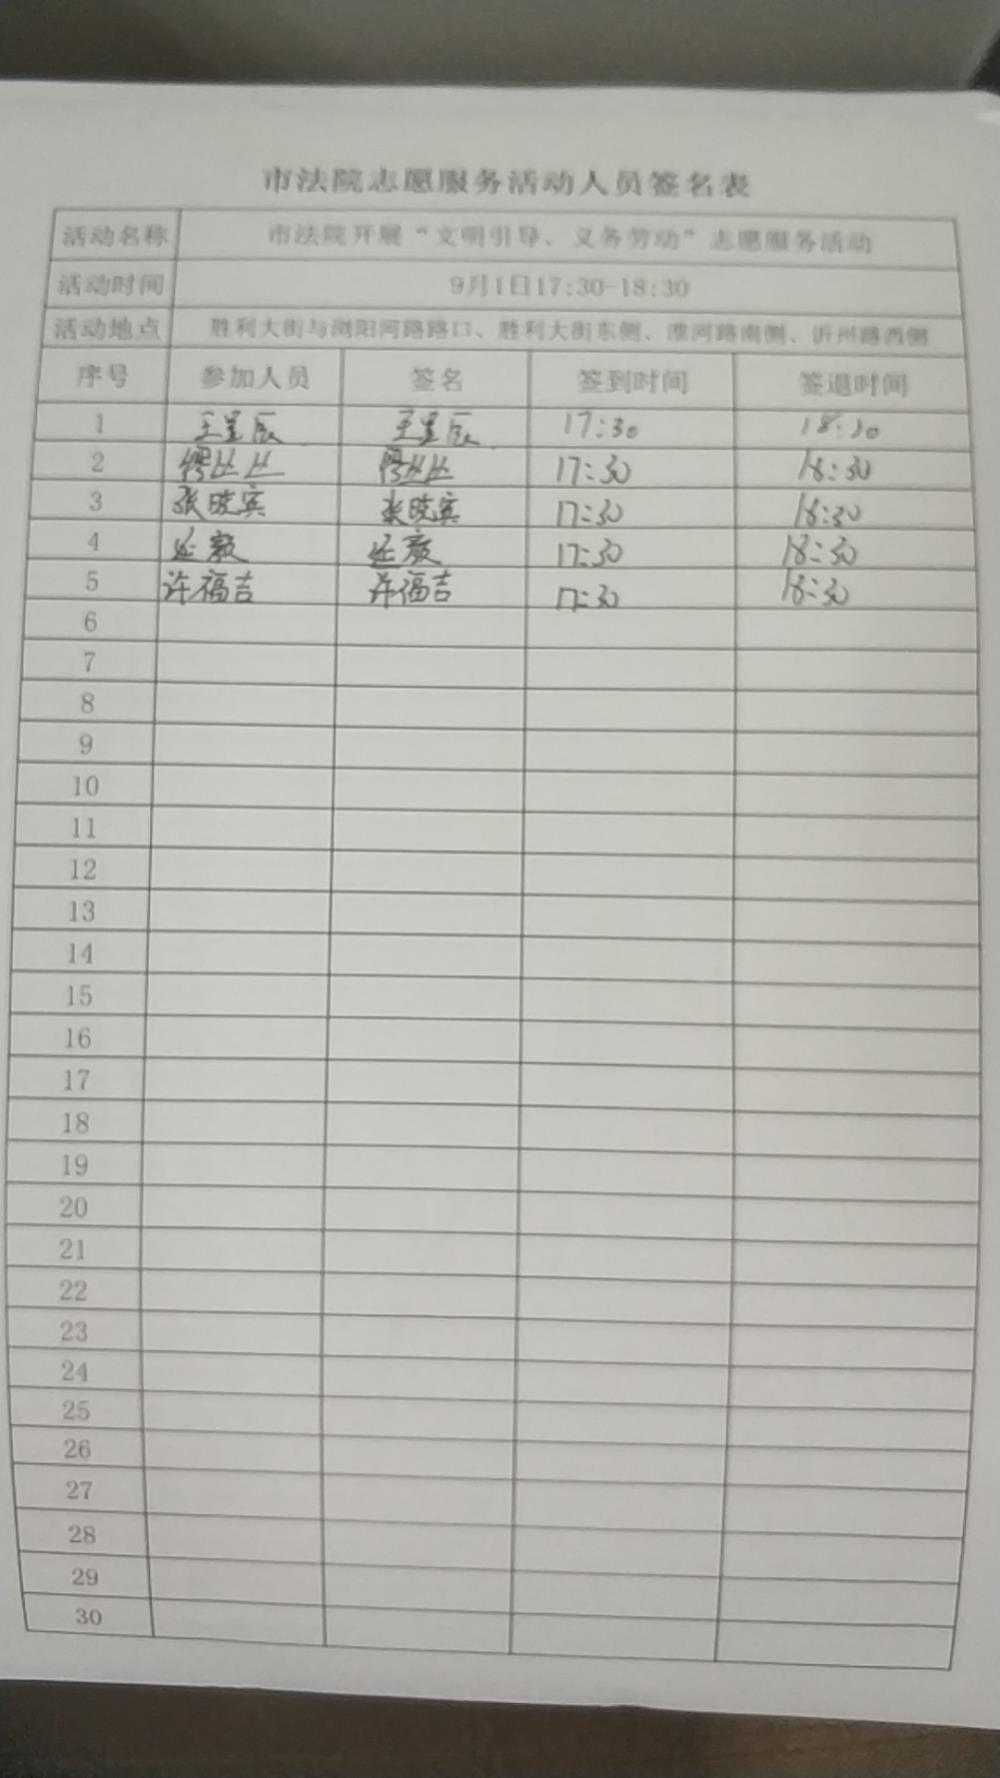 市法院志愿服务活动人员签名表
活动名称 市法院开展“文明引导、义务劳动”志愿服务活动
活动时间 9月1日17:30-18:30
活动地点 胜利大街与浏阳河路路口、胜利大街东侧、淮河路南侧、沂州路西侧
序号 参加人员 签名 签到时间 签退时间
1 王星辰 王星辰 17:30 18:30
2 缪丛丛 缪丛丛 17:30 18:30
3 张晓宾 张晓宾 17:30 18:30
4 17:30 18:30
5 许福吉 许福吉 17:30 18:30
6
7
8
9
10
11
12
13
14
15
16
17
18
19
20
21
22
23
24
25
26
27
28
29
30